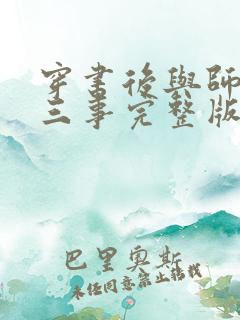 穿書後與師
三事完整版
巴里奧斯
未经同意禁止转载